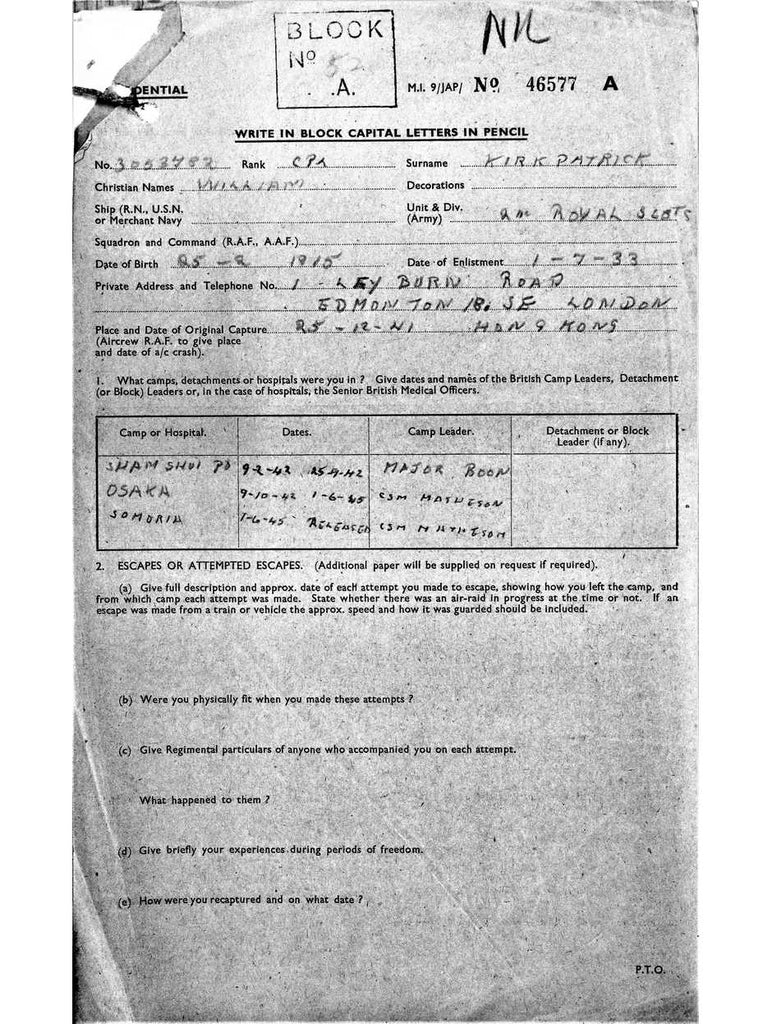 BLOCK
Nº 52
. .A.
NIL
DENTIAL
M.I. 9/JAP/ Nº 46577 A
WRITE IN BLOCK CAPITAL LETTERS IN PENCIL
No. 3053782 Rank CPL Surname KIRKPATRICK
Christian Names WILLIAM Decorations
Ship (R.N., U.S.N. or Merchant Navy
Unit & Div. (Army) ROYAL SCOTS
Squadron and Command (R.A.F., A.A.F.)
Date of Birth 25-2 1915 Date of Enlistment 1-7-33
Private Address and Telephone No. 1 LEY BURN ROAD
EDMONTON 18. SE LONDON
Place and Date of Original Capture 25-12-41 HONG KONG
(Aircrew R.A.F. to give place
and date of a/c crash).
1. What camps, detachments or hospitals were you in ? Give dates and names of the British Camp Leaders, Detachment
(or Block) Leaders or, in the case of hospitals, the Senior British Medical Officers.
Camp or Hospital. Dates. Camp Leader. Detachment or Block
Leader (if any).
SHAM SHUI PO 9-2-42 25-9-42 MAJOR BOON
OSAKA 9-10-42 1-6-45 CSM MATHESON
1-6-45 RELEASED CSM MATHESON
2. ESCAPES OR ATTEMPTED ESCAPES. (Additional paper will be supplied on request if required).
(a) Give full description and approx. date of each attempt you made to escape, showing how you left the camp, and
from which camp each attempt was made. State whether there was an air-raid in progress at the time or not. If an
escape was made from a train or vehicle the approx. speed and how it was guarded should be included.
(b) Were you physically fit when you made these attempts ?
(c) Give Regimental particulars of anyone who accompanied you on each attempt.
What happened to them ?
(d) Give briefly your experiences during periods of freedom.
(e) How were you recaptured and on what date ?
P.T.O.